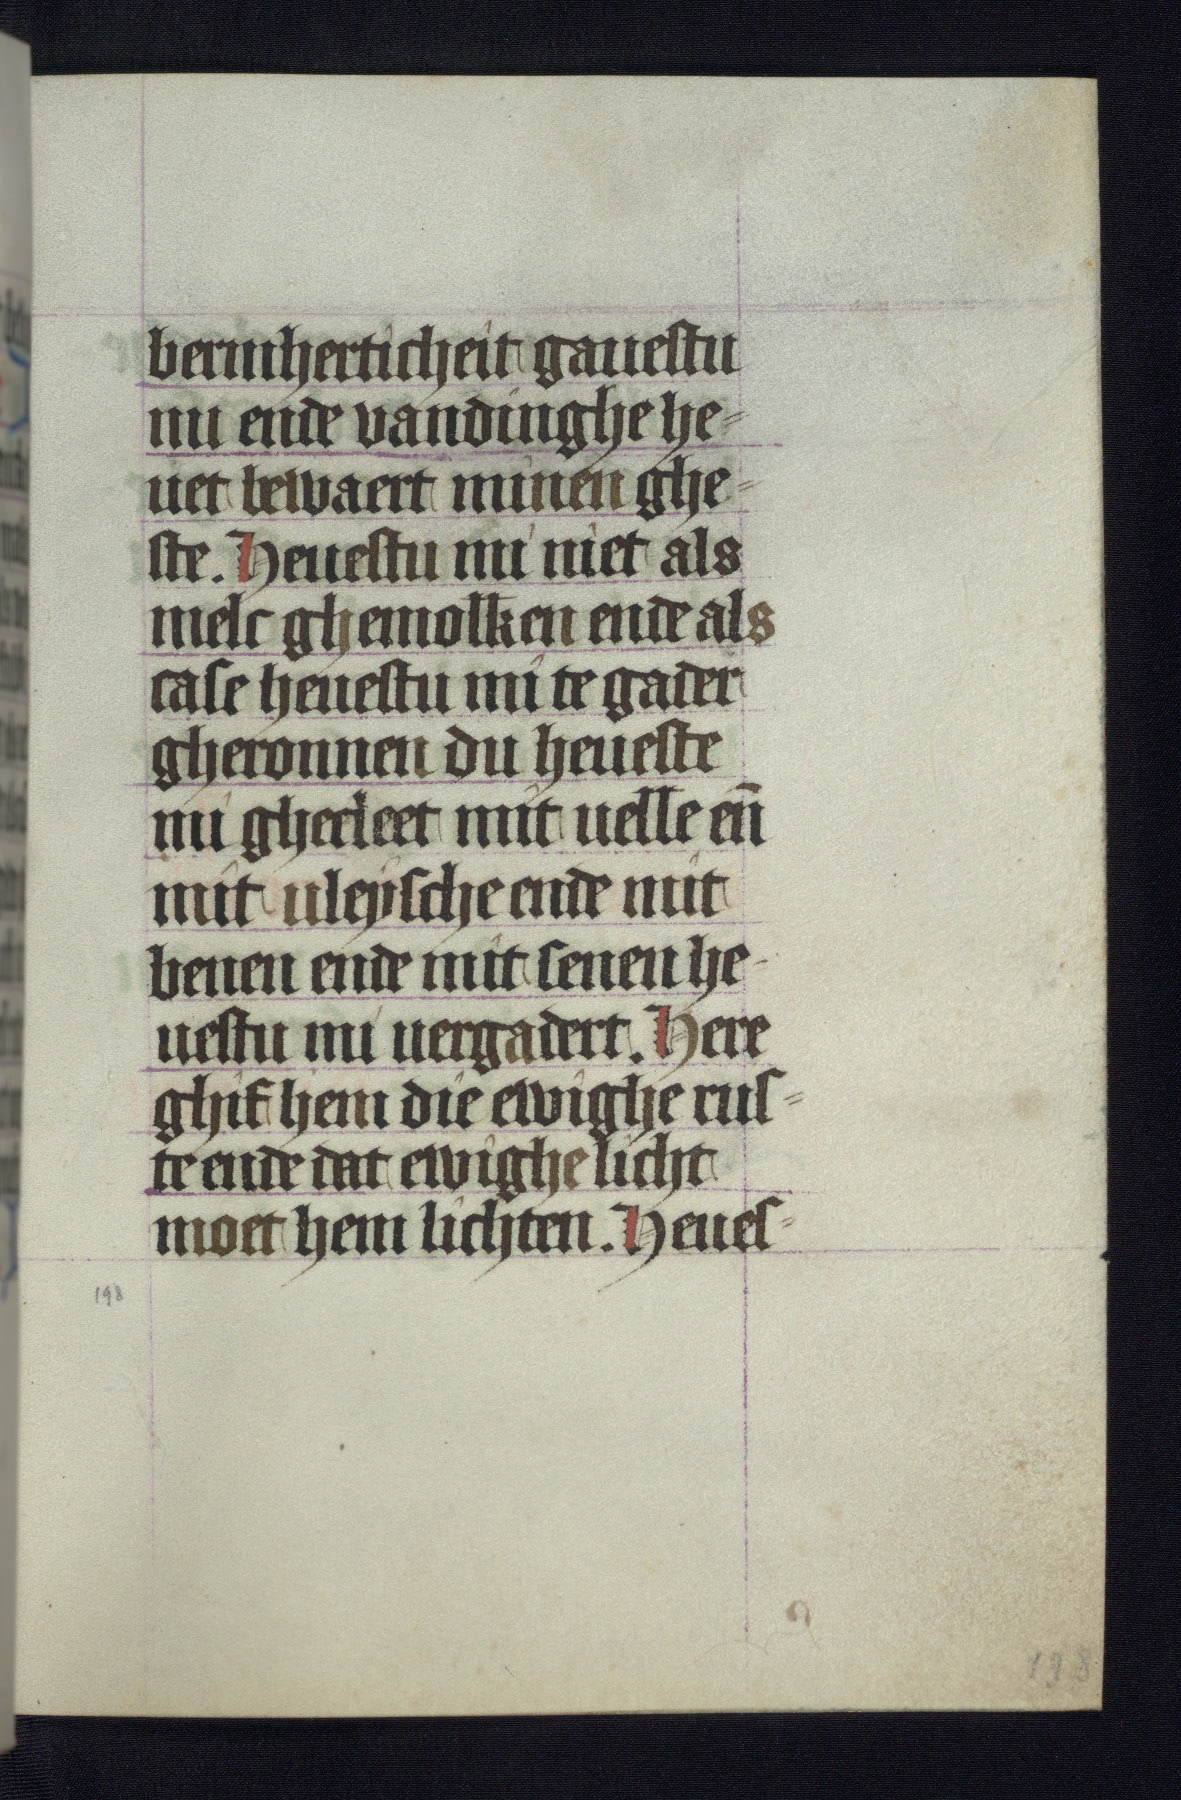 bermherticheit gauestu
mi ende vandinghe he-
uet bewaert minen ghe-
ste. Heuestu mi niet als
melc ghemolken ende als
case heuestu mi te gader
gheronnen du heueste
mi ghecleet mit uelle en̄
mit uleysche ende mit
benen ende mit senen he-
uestu mi uergadert. Here
ghif hem die ewighe rus-
te ende dat ewighe licht
moet hem lichten. Heues-
198
198